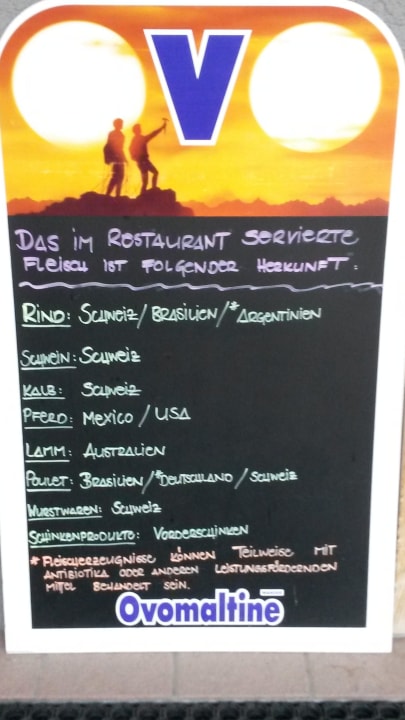 OVO
DAS IM RESTAURANT SERVIERTE
FLEISCH IST FOLGENDER HERKUNFT:
RIND: SCHWEIZ / BRASILIEN / *ARGENTINIEN
SCHWEIN: SCHWEIZ
KALB: SCHWEIZ
PFERD: MEXICO / USA
LAMM: AUSTRALIEN
POULET: BRASILIEN / *DEUTSCHLAND / SCHWEIZ
WURSTWAREN: SCHWEIZ
SCHINKENPRODUKTE: VORDERSCHINKEN
* FLEISCHERZEUGNISSE KÖNNEN TEILWEISE MIT
ANTIBIOTIKA ODER ANDEREN LEISTUNGSFÖRDERNDEN
MITTEL BEHANDELT SEIN.
Ovomaltine